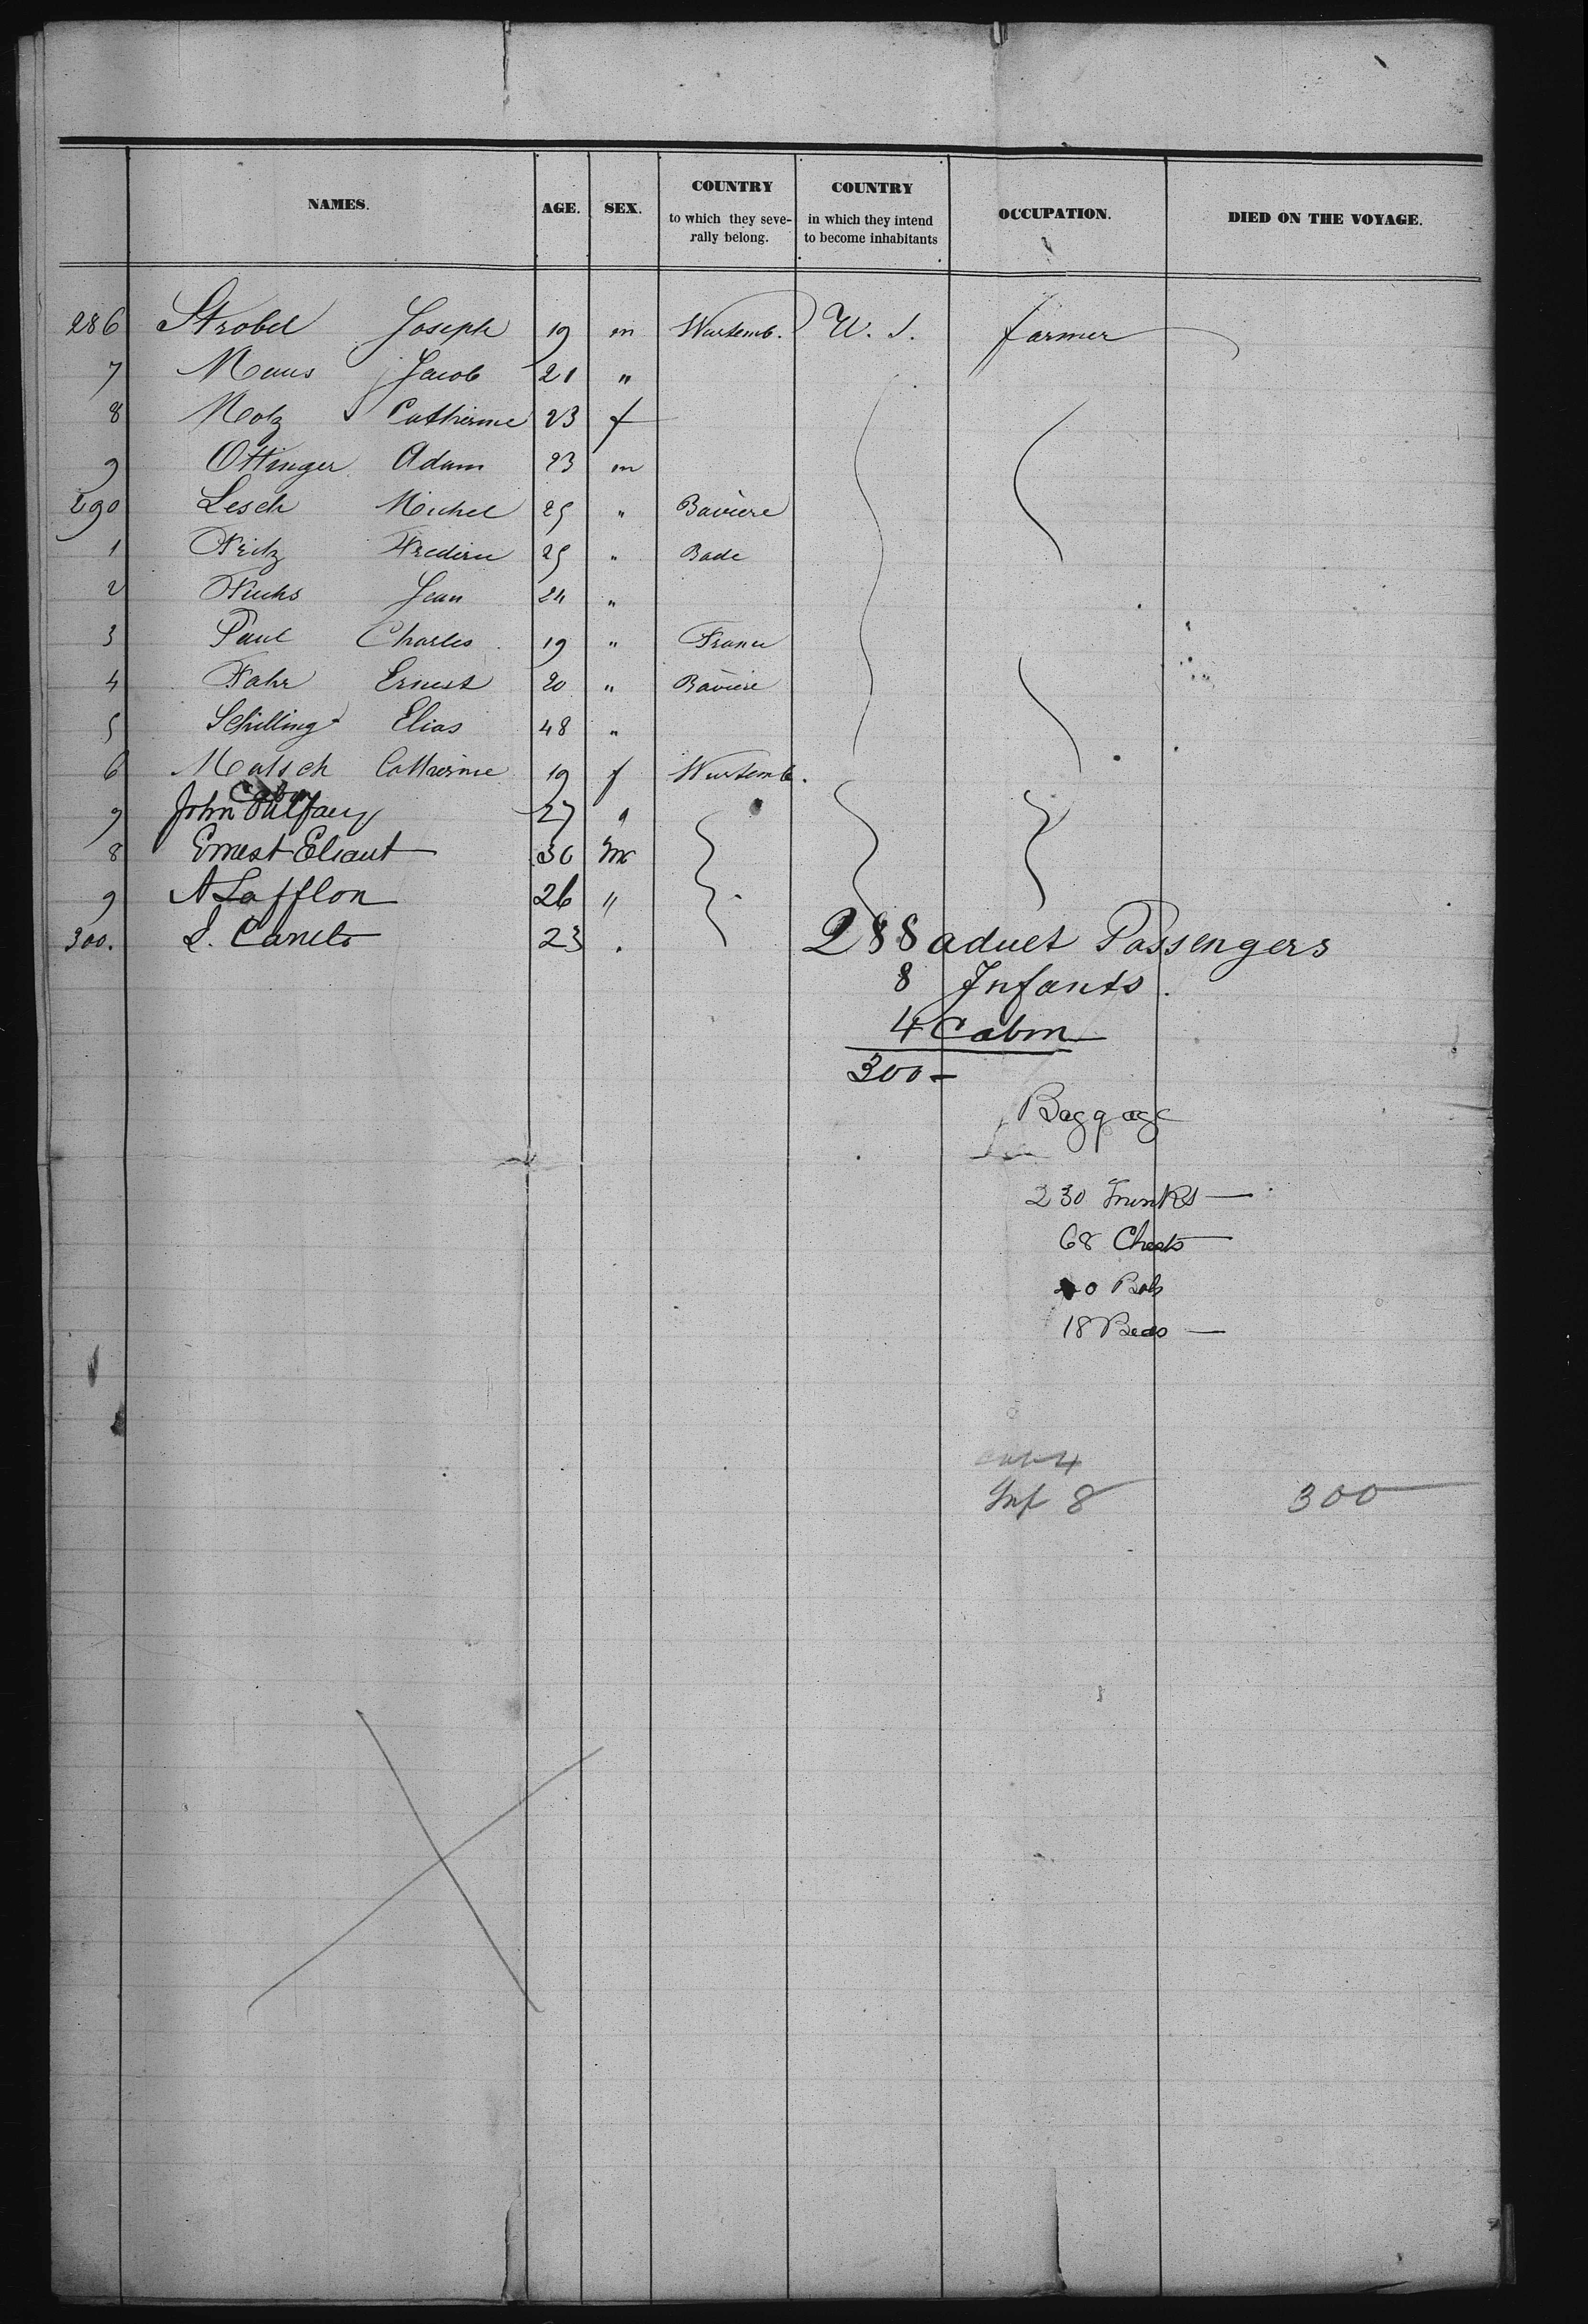 NAMES. AGE. SEX. COUNTRY to which they seve- rally belong. COUNTRY in which they intend to become inhabitants OCCUPATION. DIED ON THE VOYAGE.
286 Strobel Joseph 19 m Wurtemb. U. S. farmer
7 Maus Jacob 21 "
8 Motz Catherine 23 f
9 Ottinger Adam 23 m
290 Lesch Michel 25 " Baviere
1 Fritz Frederic 25 " Bade
2 Fuchs Jean 24 "
3 Paul Charles 19 " France
4 Fahr Ernest 20 " Baviere
5 Schilling Elias 48 "
6 Matsch Catherine 19 f Wurtemb.
Cabin
9 John 27 "
8 Ernest Elsaut 30 m
9 A Lafflon 26 "
300. L. Caneto 23 .
288 aduet Passengers
8 Infants.
4 Cabin
300-
Baggage
230 Trunks
68 Chests
18 Beds
Cab 4
Inf 8 300